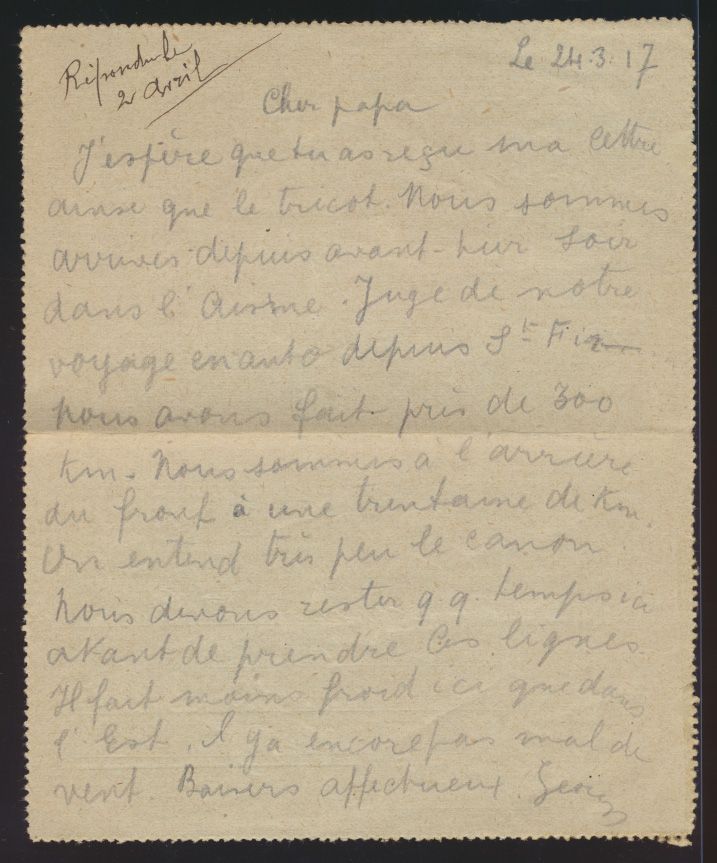 Répondu le
2 Avril
Le 24.3.17
Cher papa
J'espère que tu as reçu ma lettre
ainsi que le tricot. Nous sommes
arrivés depuis avant-hier soir
dans l'Aisne. Juge de notre
voyage en auto depuis St
nous avons fait près de 300
km. Nous sommes à l'arrière
du front à une trentaine de km.
On entend très peu le canon.
Nous devons rester q.q. temps ici
avant de prendre les lignes.
Il fait moins froid ici que dans
l'Est, il y a encore pas mal de
vent Baisers affectueux